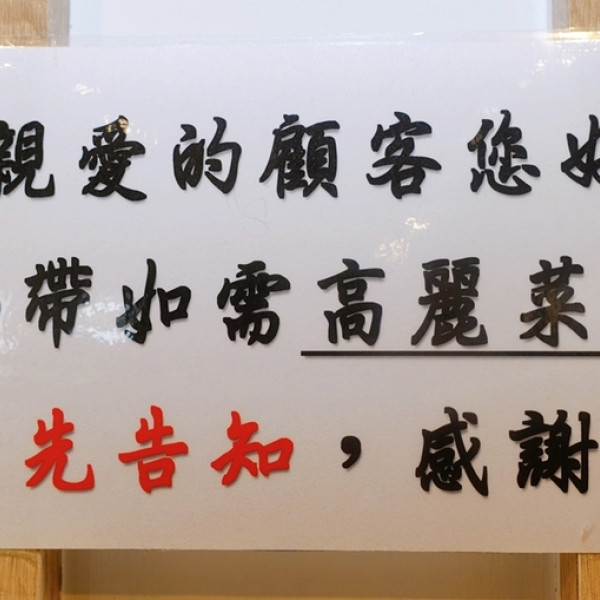 親愛的顧客您好
帶如需高麗菜
先告知，感謝